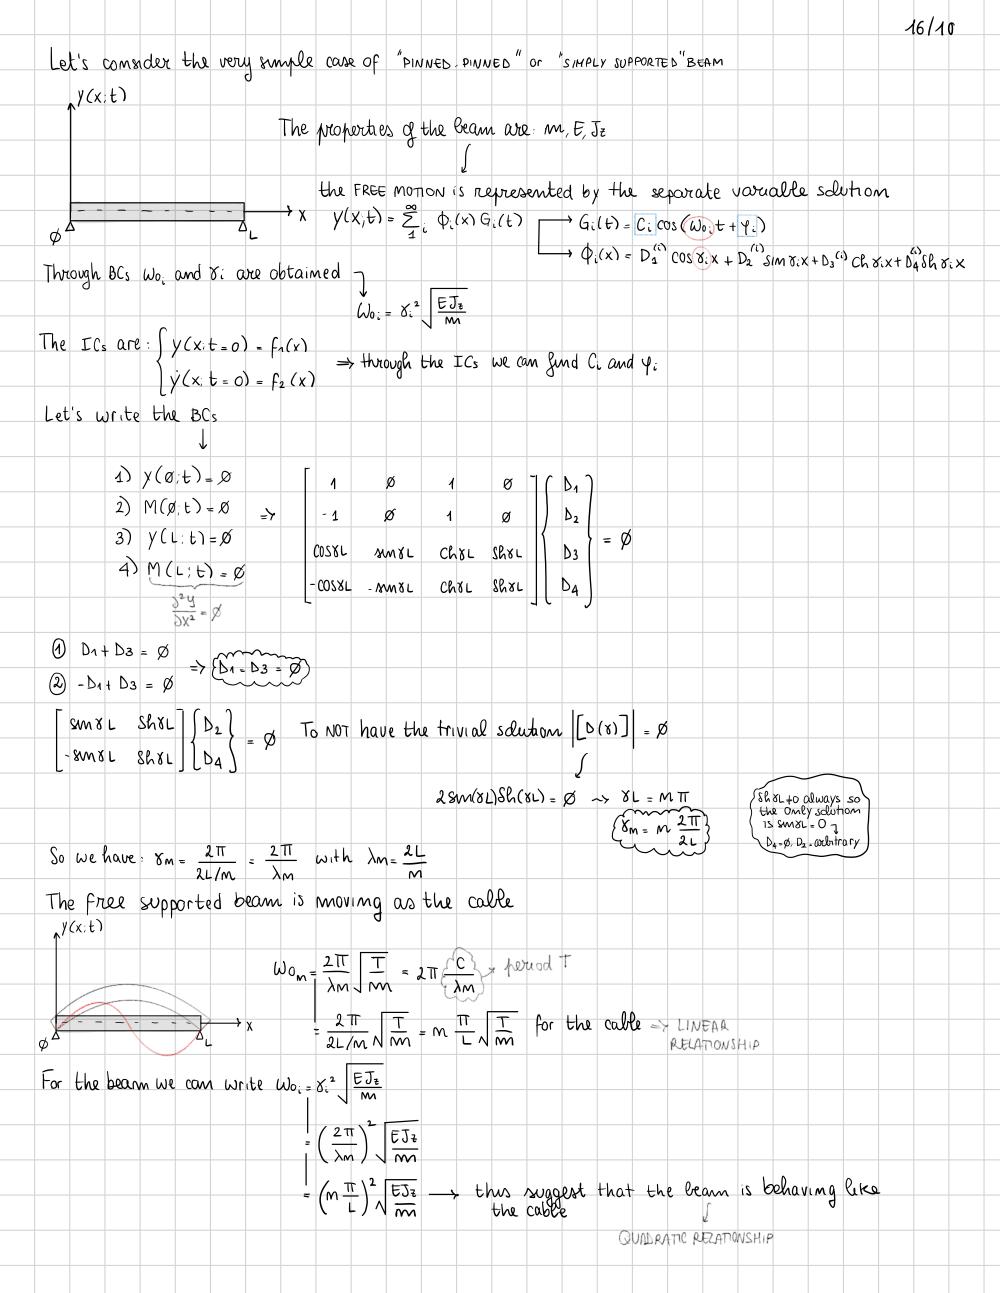 16/10
Let's consider the very simple case of "PINNED-PINNED" or "SIMPLY SUPPORTED" BEAM
y(x;t)
The properties of the beam are: m, E, Jz
the FREE MOTION is represented by the separate variable solution
y(x,t) = ∑₁^∞ᵢ ϕᵢ(x) Gᵢ(t)
Gᵢ(t) = Cᵢ cos(ω₀ᵢt + φᵢ)
ϕᵢ(x) = D₁⁽ⁱ⁾ cosγᵢx + D₂⁽ⁱ⁾ sinγᵢx + D₃⁽ⁱ⁾ chγᵢx + D₄⁽ⁱ⁾ shγᵢx
x
∅ L
Through BCs ω₀ᵢ and γᵢ are obtained
ω₀ᵢ = γᵢ² √(EJz/m)
The ICs are: { y(x;t=0) = f₁(x)
ẏ(x;t=0) = f₂(x)
⇒ through the ICs we can find Cᵢ and φᵢ
Let's write the BCs
1) y(∅;t) = ∅
2) M(∅;t) = ∅
3) y(L;t) = ∅
4) M(L;t) = ∅
∂²y/∂x² = ∅
⇒
1 ∅ 1 ∅ D₁
-1 ∅ 1 ∅ D₂
cosγL sinγL chγL shγL D₃ = ∅
-cosγL -sinγL chγL shγL D₄
① D₁ + D₃ = ∅
② -D₁ + D₃ = ∅
⇒ D₁ = D₃ = ∅
[sinγL shγL] {D₂}
[-sinγL shγL] {D₄} = ∅
To NOT have the trivial solution |[D(γ)]| = ∅
2sin(γL)Sh(γL) = ∅ ⤳ γL = mπ
γm = m 2π/2L
ShγL ≠ 0 always so
the only solution
is sinγL = 0
D₄=∅, D₂=arbitrary
So we have: γm = 2π/(2L/m) = 2π/λm with λm = 2L/m
The free supported beam is moving as the cable
y(x;t)
x
∅ L
ω₀m = 2π/λm √(T/m) = 2π C/λm → period T
= 2π/(2L/m) √(T/m) = m π/L √(T/m) for the cable ⇒ LINEAR
RELATIONSHIP
For the beam we can write ω₀ᵢ = γᵢ² √(EJz/m)
= (2π/λm)² √(EJz/m)
= (m π/L)² √(EJz/m) → this suggest that the beam is behaving like
the cable
QUADRATIC RELATIONSHIP